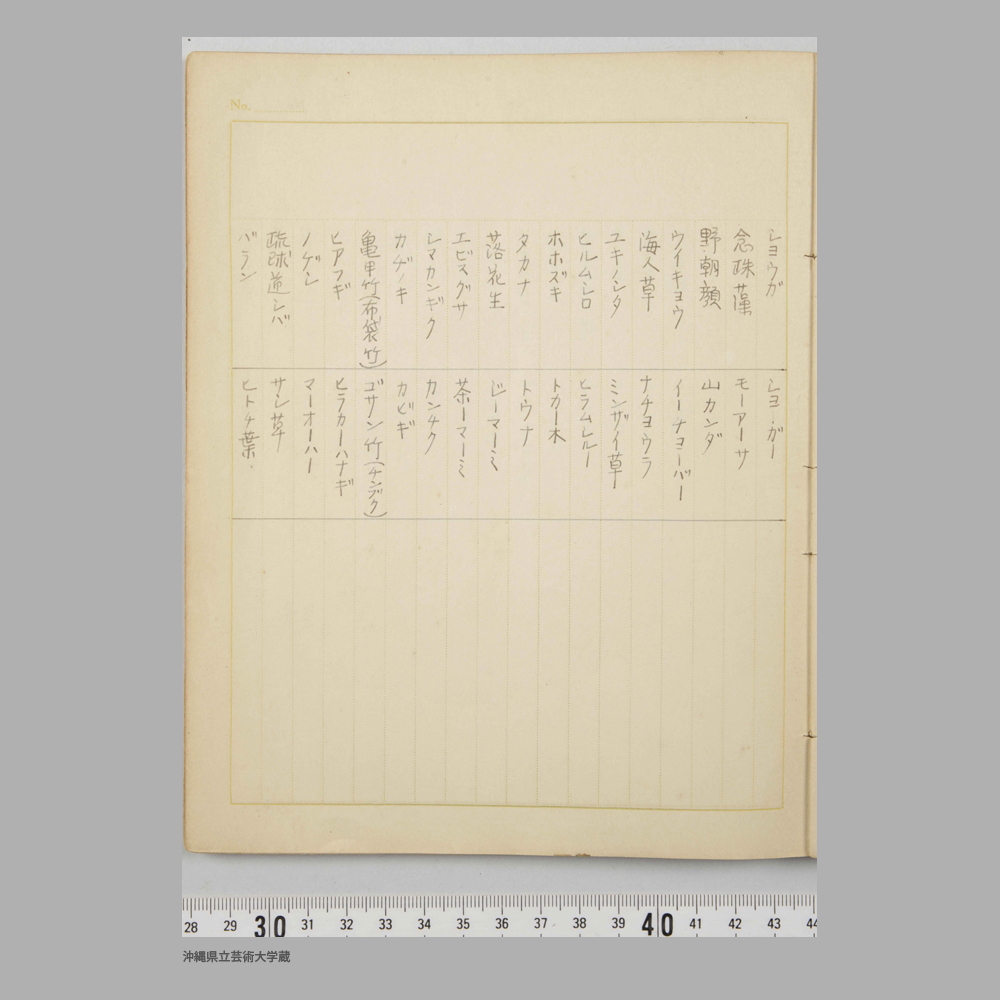 No.
シヨウガ
シヨーガー
念珠藻
モーアーサ
野朝顔
山カンダ
ウイキヨウ
イーチヨーバー
海人草
ナチヨウラ
ユキノシタ
ミンザイ草
ヒルムシロ
ヒラムシルー
ホホズキ
トカー木
タカナ
トウナ
落花生
ジーマーミ
エビスグサ
茶ーマーミ
シマカンギク
カンチク
カヂノキ
カビギ
亀甲竹(布袋竹)
ゴサン竹(チンブク)
ヒアフギ
ヒラカーハナギ
ノゲシ
マーオーハー
琉球道シバ
サシ草
バラン
ヒトチ葉.
28 29 30 31 32 33 34 35 36 37 38 39 40 41 42 43 44
沖縄県立芸術大学蔵